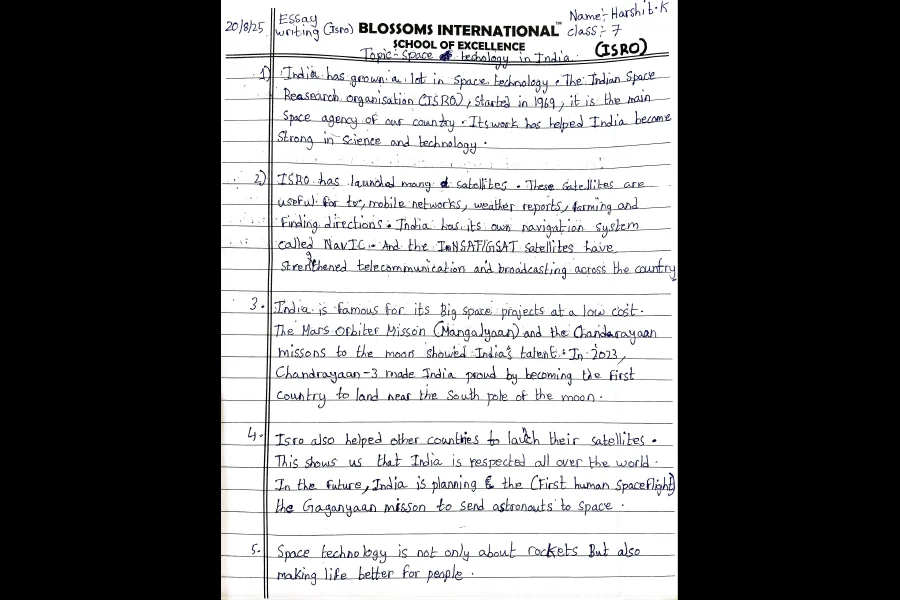 20/8/25 Essay writing (Isro) BLOSSOMS INTERNATIONAL™ Name:- Harshit.K
SCHOOL OF EXCELLENCE class:- 7
(ISRO)
Topic:- Space techology in India.
1) India has grown a lot in Space technology. The Indian Space
Reasearch organisation (ISRO), Started in 1969, it is the main
Space agency of our country. Its work has helped India become
Strong in Science and technology.
2) ISRO has launched many satellites. These satellites are
useful for tv, mobile networks, weather reports, farming and
Finding directions. India has its own navigation system
called NavIC. And the INSAT/GSAT satellites have
strengthened telecommunication and broadcasting across the country
3. India is famous for its Big space projects at a low cost.
The Mars Orbiter Misson (Mangalyaan) and the Chandarayaan
missons to the moon showed India's talent. In 2023,
Chandrayaan-3 made India proud by becoming the First
Country to land near the South pole of the moon.
4. Isro also helped other countries to lauch their satellites.
This shows us that India is respected all over the world.
In the Future, India is planning the (First human Spaceflight)
the Gaganyaan misson to send astronauts to Space.
5. Space technology is not only about rockets But also
making life better for people.